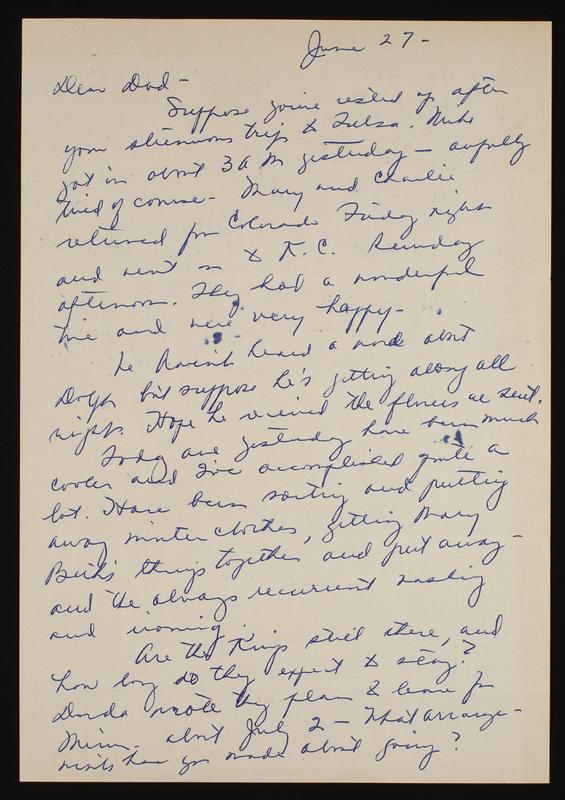 June 27-
Dear Dad-
Suppose you're rested up after
your strenuous trip to Tulsa. Mike
got in about 3 A M yesterday - awfully
tired of course - Mary and Charlie
returned from Colorado Friday night
and went on to K.C. Sunday
afternoon. They had a wonderful
time and were very happy-
We haven't heard a word about
but suppose he's getting along all
right. Hope he received the flowers we sent.
Today and yesterday have been much
cooler and I've accomplished quite a
lot. Have been sorting and putting
away winter clothes, getting Mary
Beth's things together and put away-
and the always recurrent washing
and ironing.
Are the Kings still there, and
how long do they expect to stay?
wrote they plan to leave for
Minn. about July 2 - What arrange-
ments have you made about going?